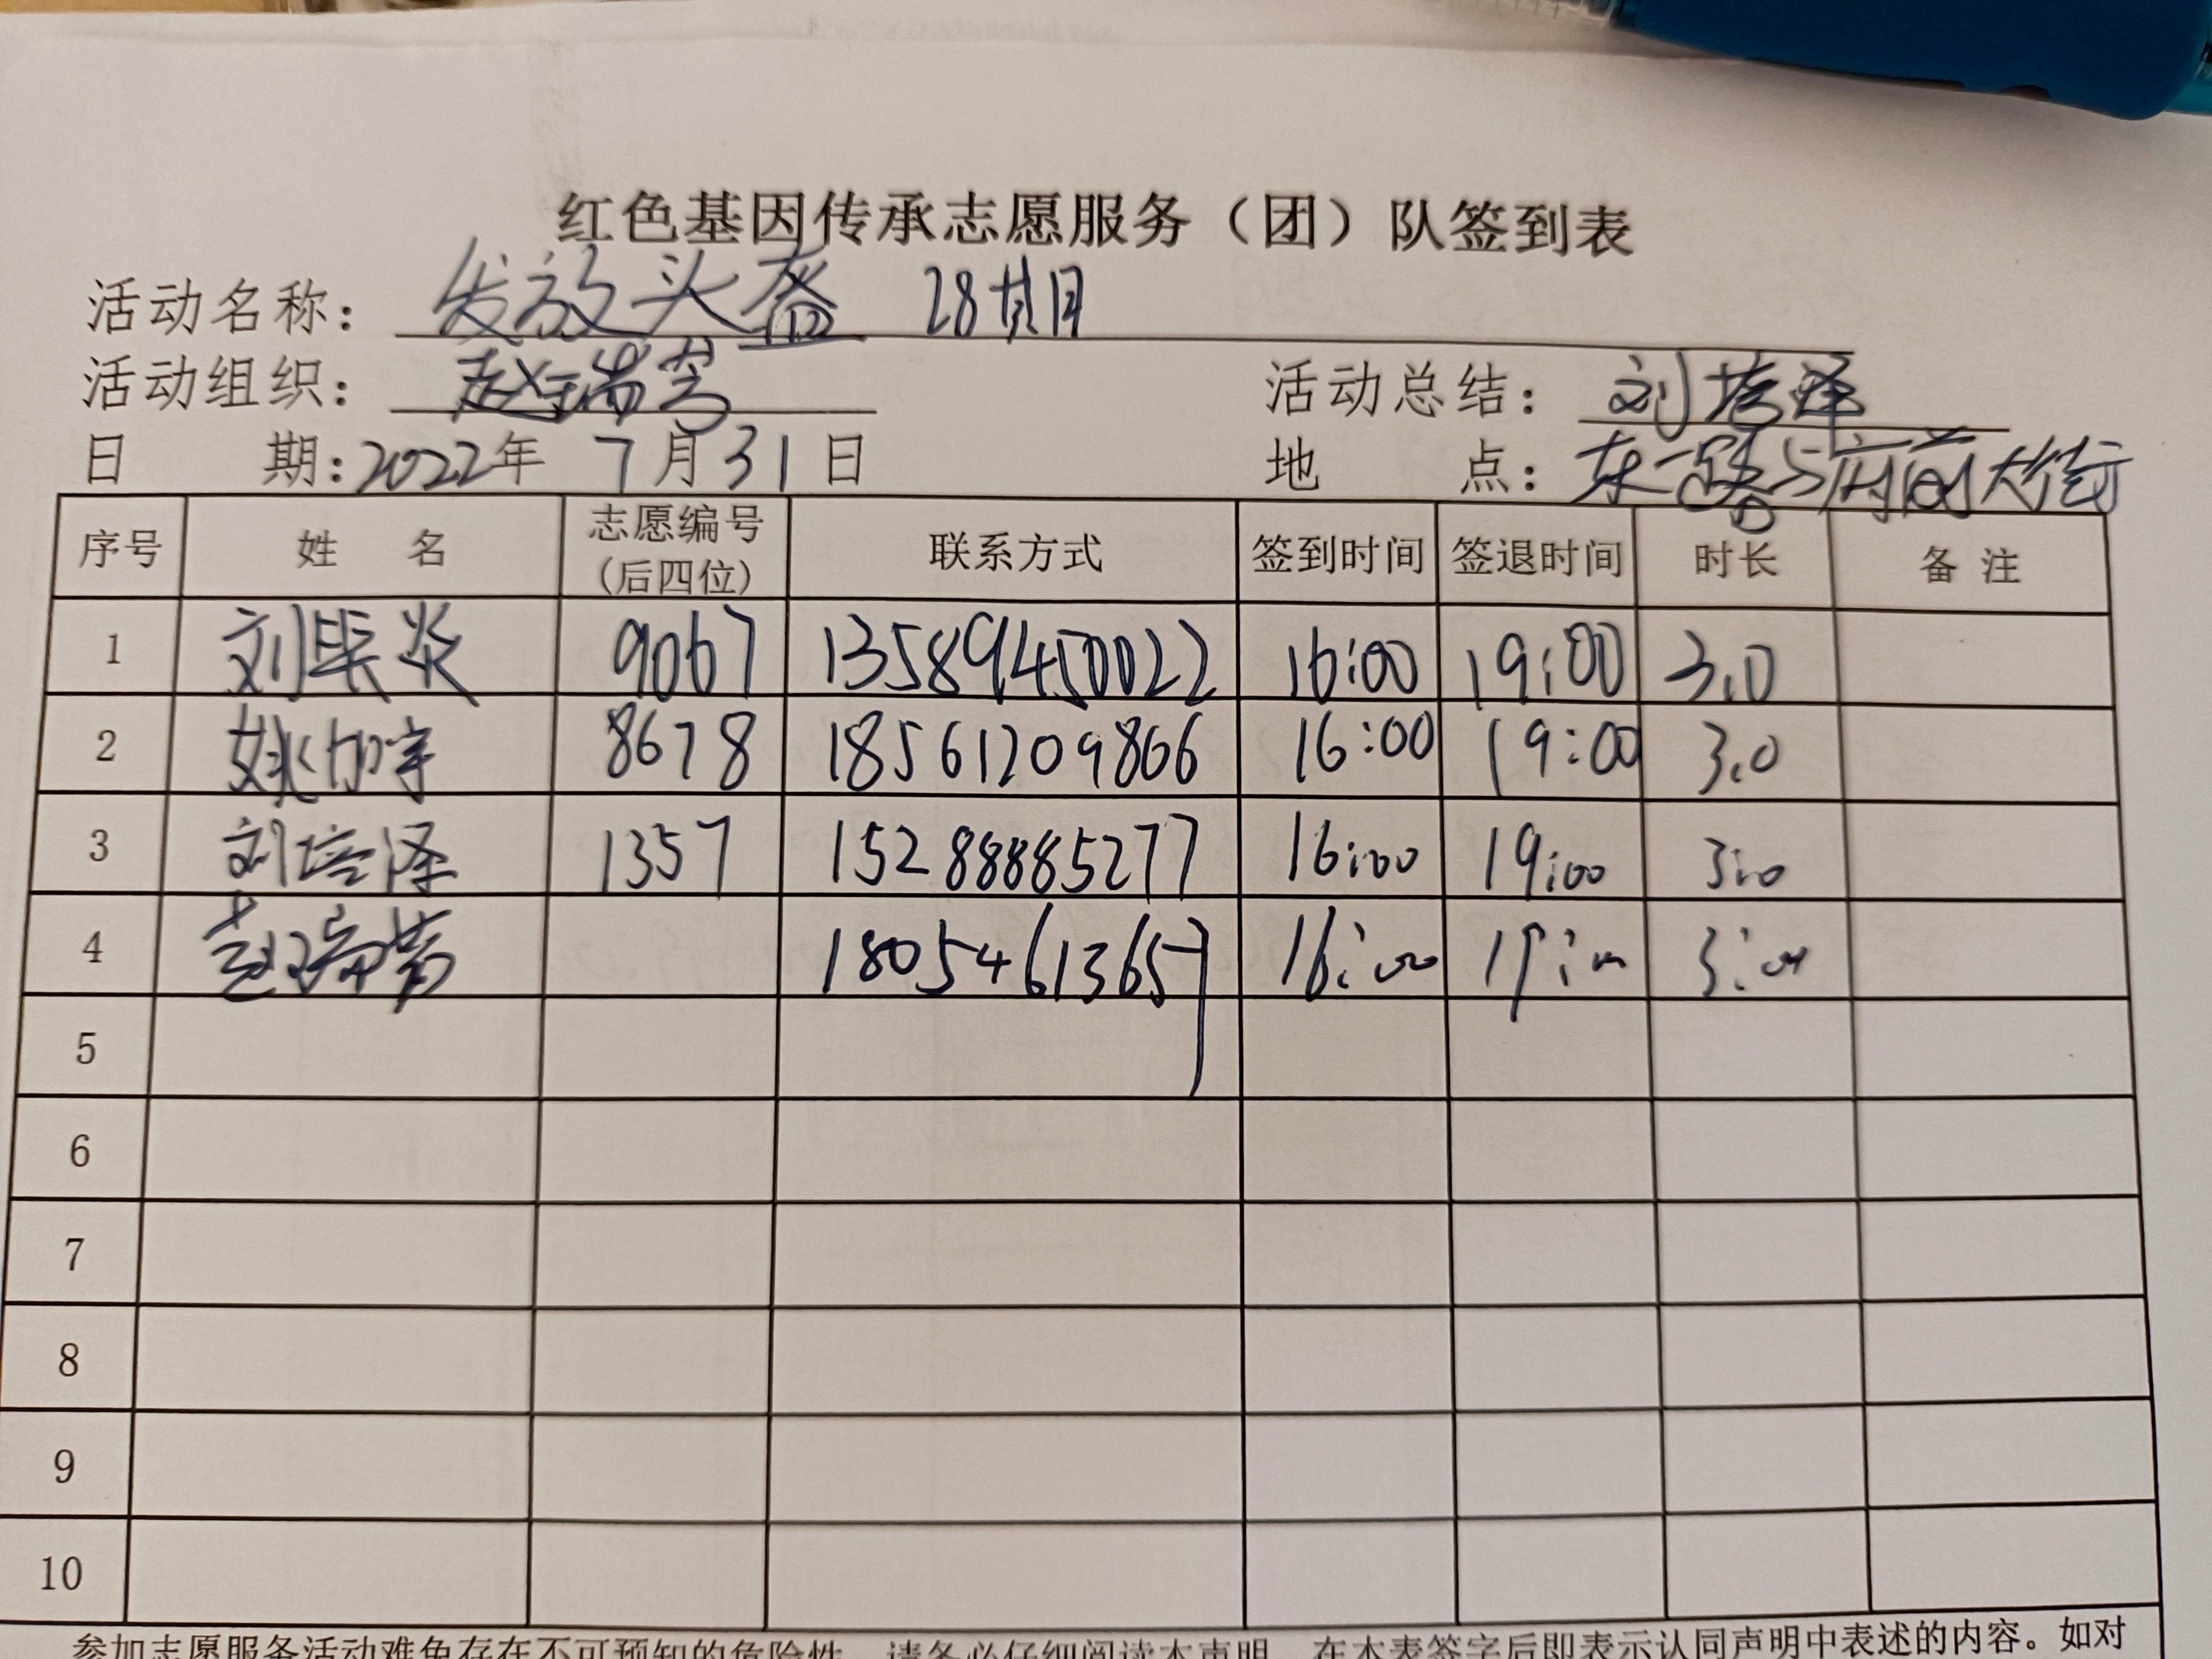 红色基因传承志愿服务（团）队签到表
活动名称：发放头盔 28
活动组织：赵瑞芳 活动总结：刘培泽
日 期：2022年 7月31日 地 点：东一路与府前大街
序号 姓 名 志愿编号（后四位） 联系方式 签到时间 签退时间 时长 备 注
1 刘 炎 9067 13589450022 16:00 19:00 3.0
2 姚加宇 8678 18561209866 16:00 19:00 3.0
3 刘培泽 1357 15288885277 16:00 19:00 3.0
4 赵瑞芳 18054613657 16:00 19:00 3:00
5
6
7
8
9
10
参加志愿服务活动难免存在不可预知的危险性，请务必仔细阅读本声明，在本表签字后即表示认同声明中表述的内容。如对